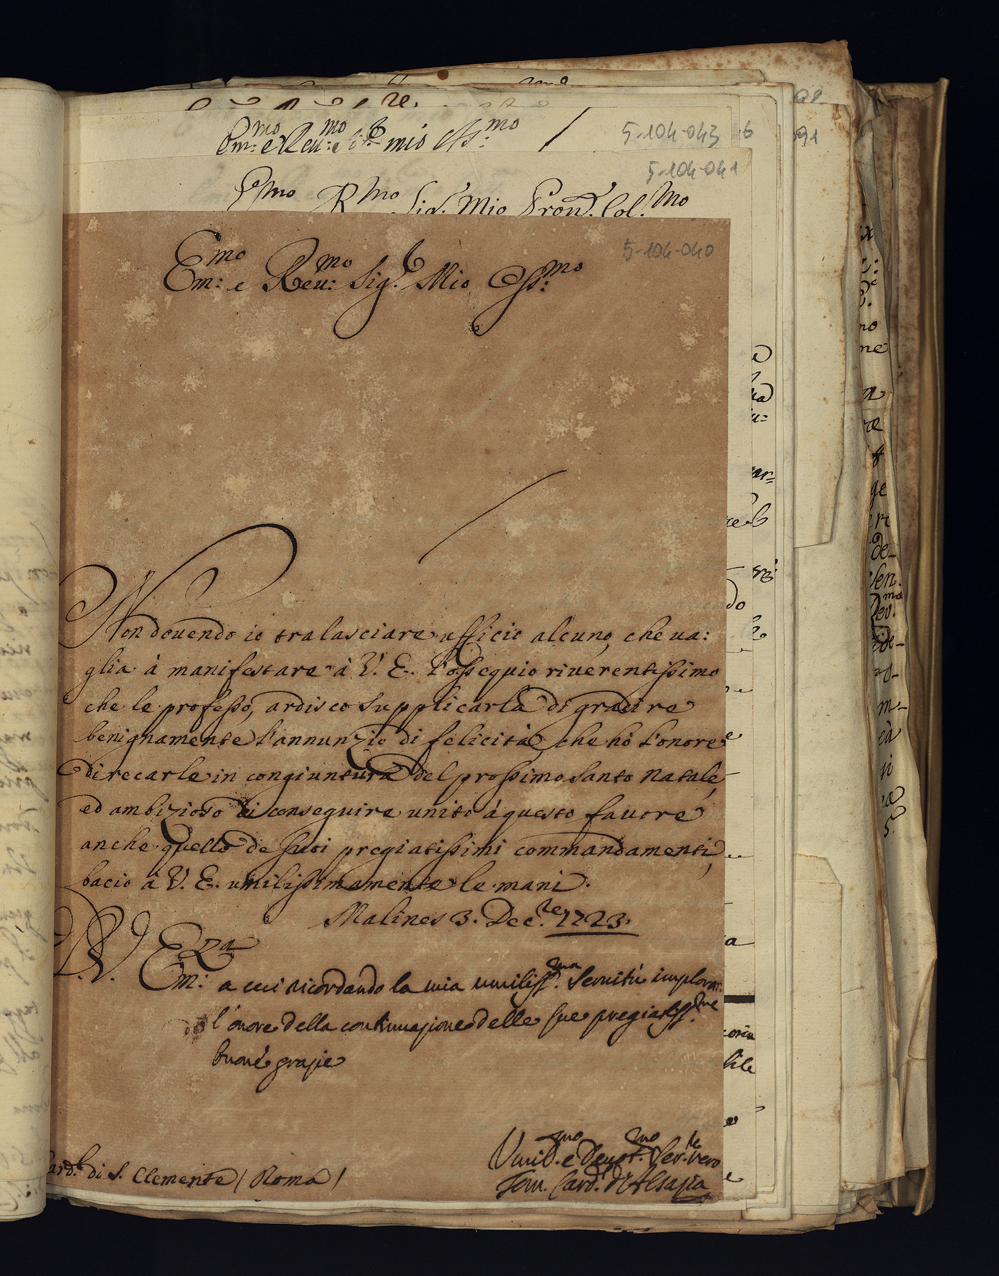 5-104-043
Em:mo e Reu:mo Sig.r mio Oss:mo
5-104-041
Sig.r Mio Pron. Col.mo
5-104-040
Em:mo e Reu:mo Sig.r Mio Oss:mo
Non douendo io tralasciare ufficio alcuno, che ua:
glia à manifestare à V. E. l'ossequio riuerentissimo
che le professo, ardisco supplicarla di gradire
benignamente l'annunzio di felicità, che hò l'onore
di recarle in congiuntura del prossimo santo natale,
ed ambizioso di conseguire unito à questo fauore
anche quello de suoi pregiatissimi commandamenti,
bacio à V. E. umilissimamente le mani.
Malines 3. Dec.re 1723.
D. V. Em:za a cui ricordando la mia umiliss.ma seruitù imploro
l'onore della continuazione delle sue pregiatiss.me
buone grazie
Umil.mo e Deuot.mo Ser.re vero
Tom. Card. d'Alsazia
Card. di S. Clemente (Roma)